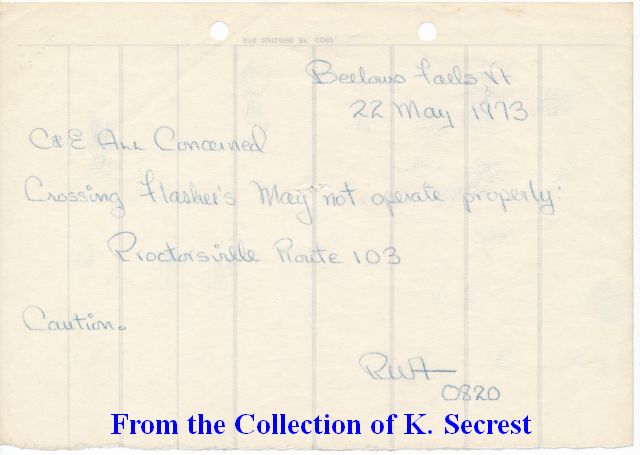 Bellows Falls, Vt
22 May 1973
C&E ALL Concerned
Crossing Flasher's May not operate properly:
Proctorsville Route 103
Caution.
RWA
0820
From the Collection of K. Secrest